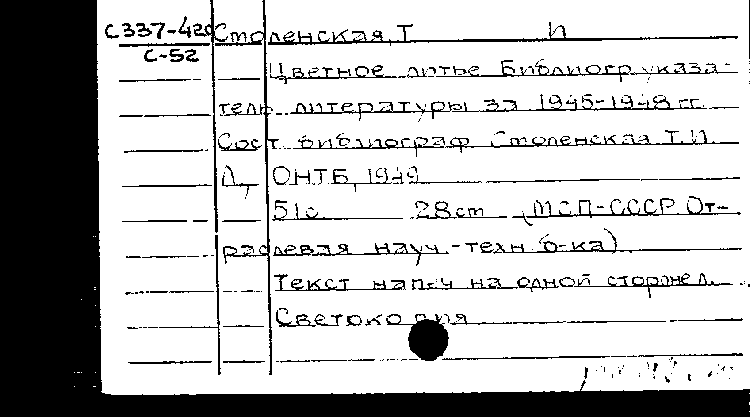 С337-420 Смоленская, Т И
С-52
Цветное литье Библиогр. указа-
тель литературы за 1945-1948 гг.
Сост библиограф Смоленская Т.И.
Л, ОНТБ, 1949
51с. 28cm (МСП-СССР От-
раслевая науч.-техн б-ка)
Текст напеч на одной стор. л.
Светокопия